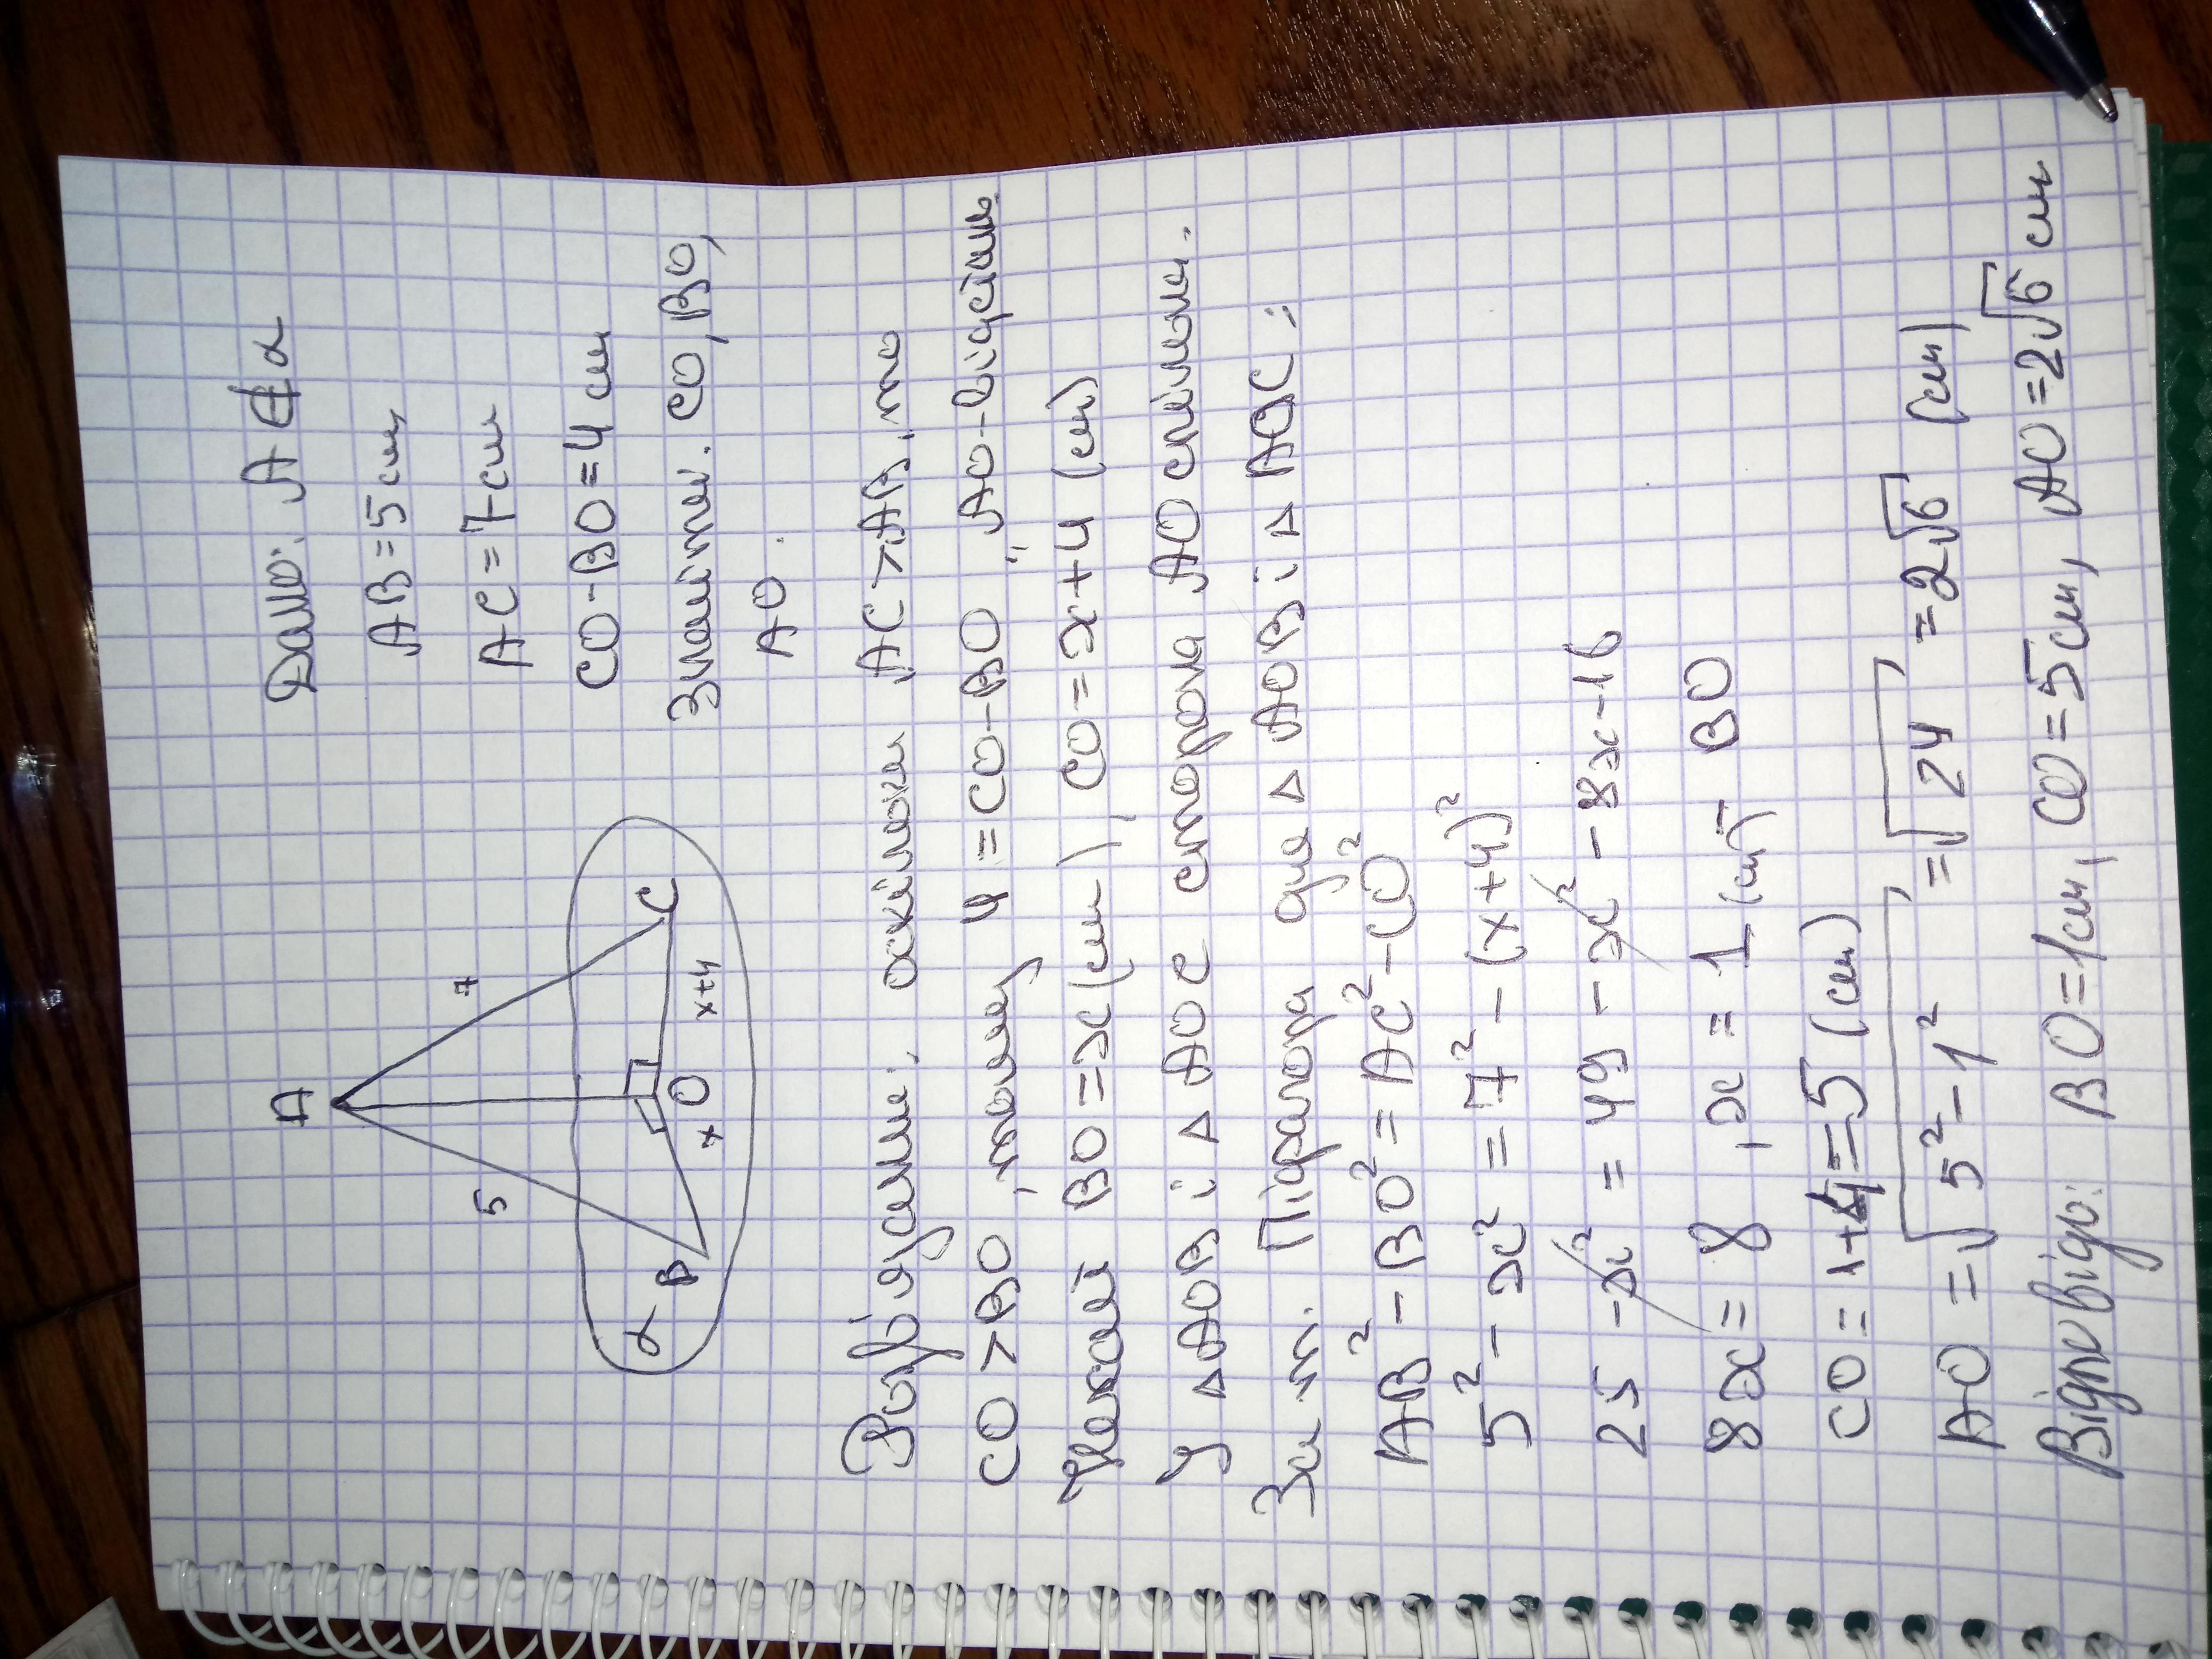 Дано: A ∉ α
AB = 5 см,
AC = 7 см
CO - BO = 4 см
Знайти: CO, BO,
AO.
A
5
7
α
B
x
O
x+4
C
Розв'язання: оскільки AC > AB, то
CO > BO, тому 4 = CO - BO, AO - відстань
Нехай BO = x (см), CO = x + 4 (см)
У △AOB і △AOC сторона AO спільна.
За т. Піфагора для △ AOB і △ AOC:
AB² - BO² = AC² - CO²
5² - x² = 7² - (x+4)²
25 - x² = 49 - x² - 8x - 16
8x = 8, x = 1 (см) BO
CO = 1 + 4 = 5 (см)
AO = √5² - 1² = √24 = 2√6 (см)
Відповідь: BO = 1 см, CO = 5 см, AO = 2√6 см